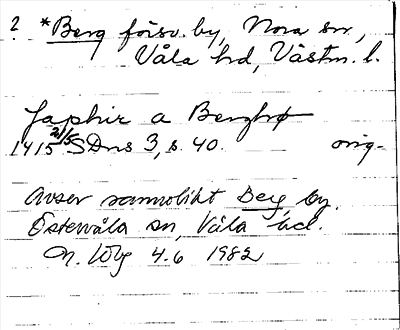 ? *Berg försv. by, Nora sn,
Våla hd, Västm. l.
Japhir a Bergh
1415 21/5 SDns 3, s. 40. orig.
Avser sannolikt Berg, by.
Östervåla sn, Våla hd.
4.6 1982